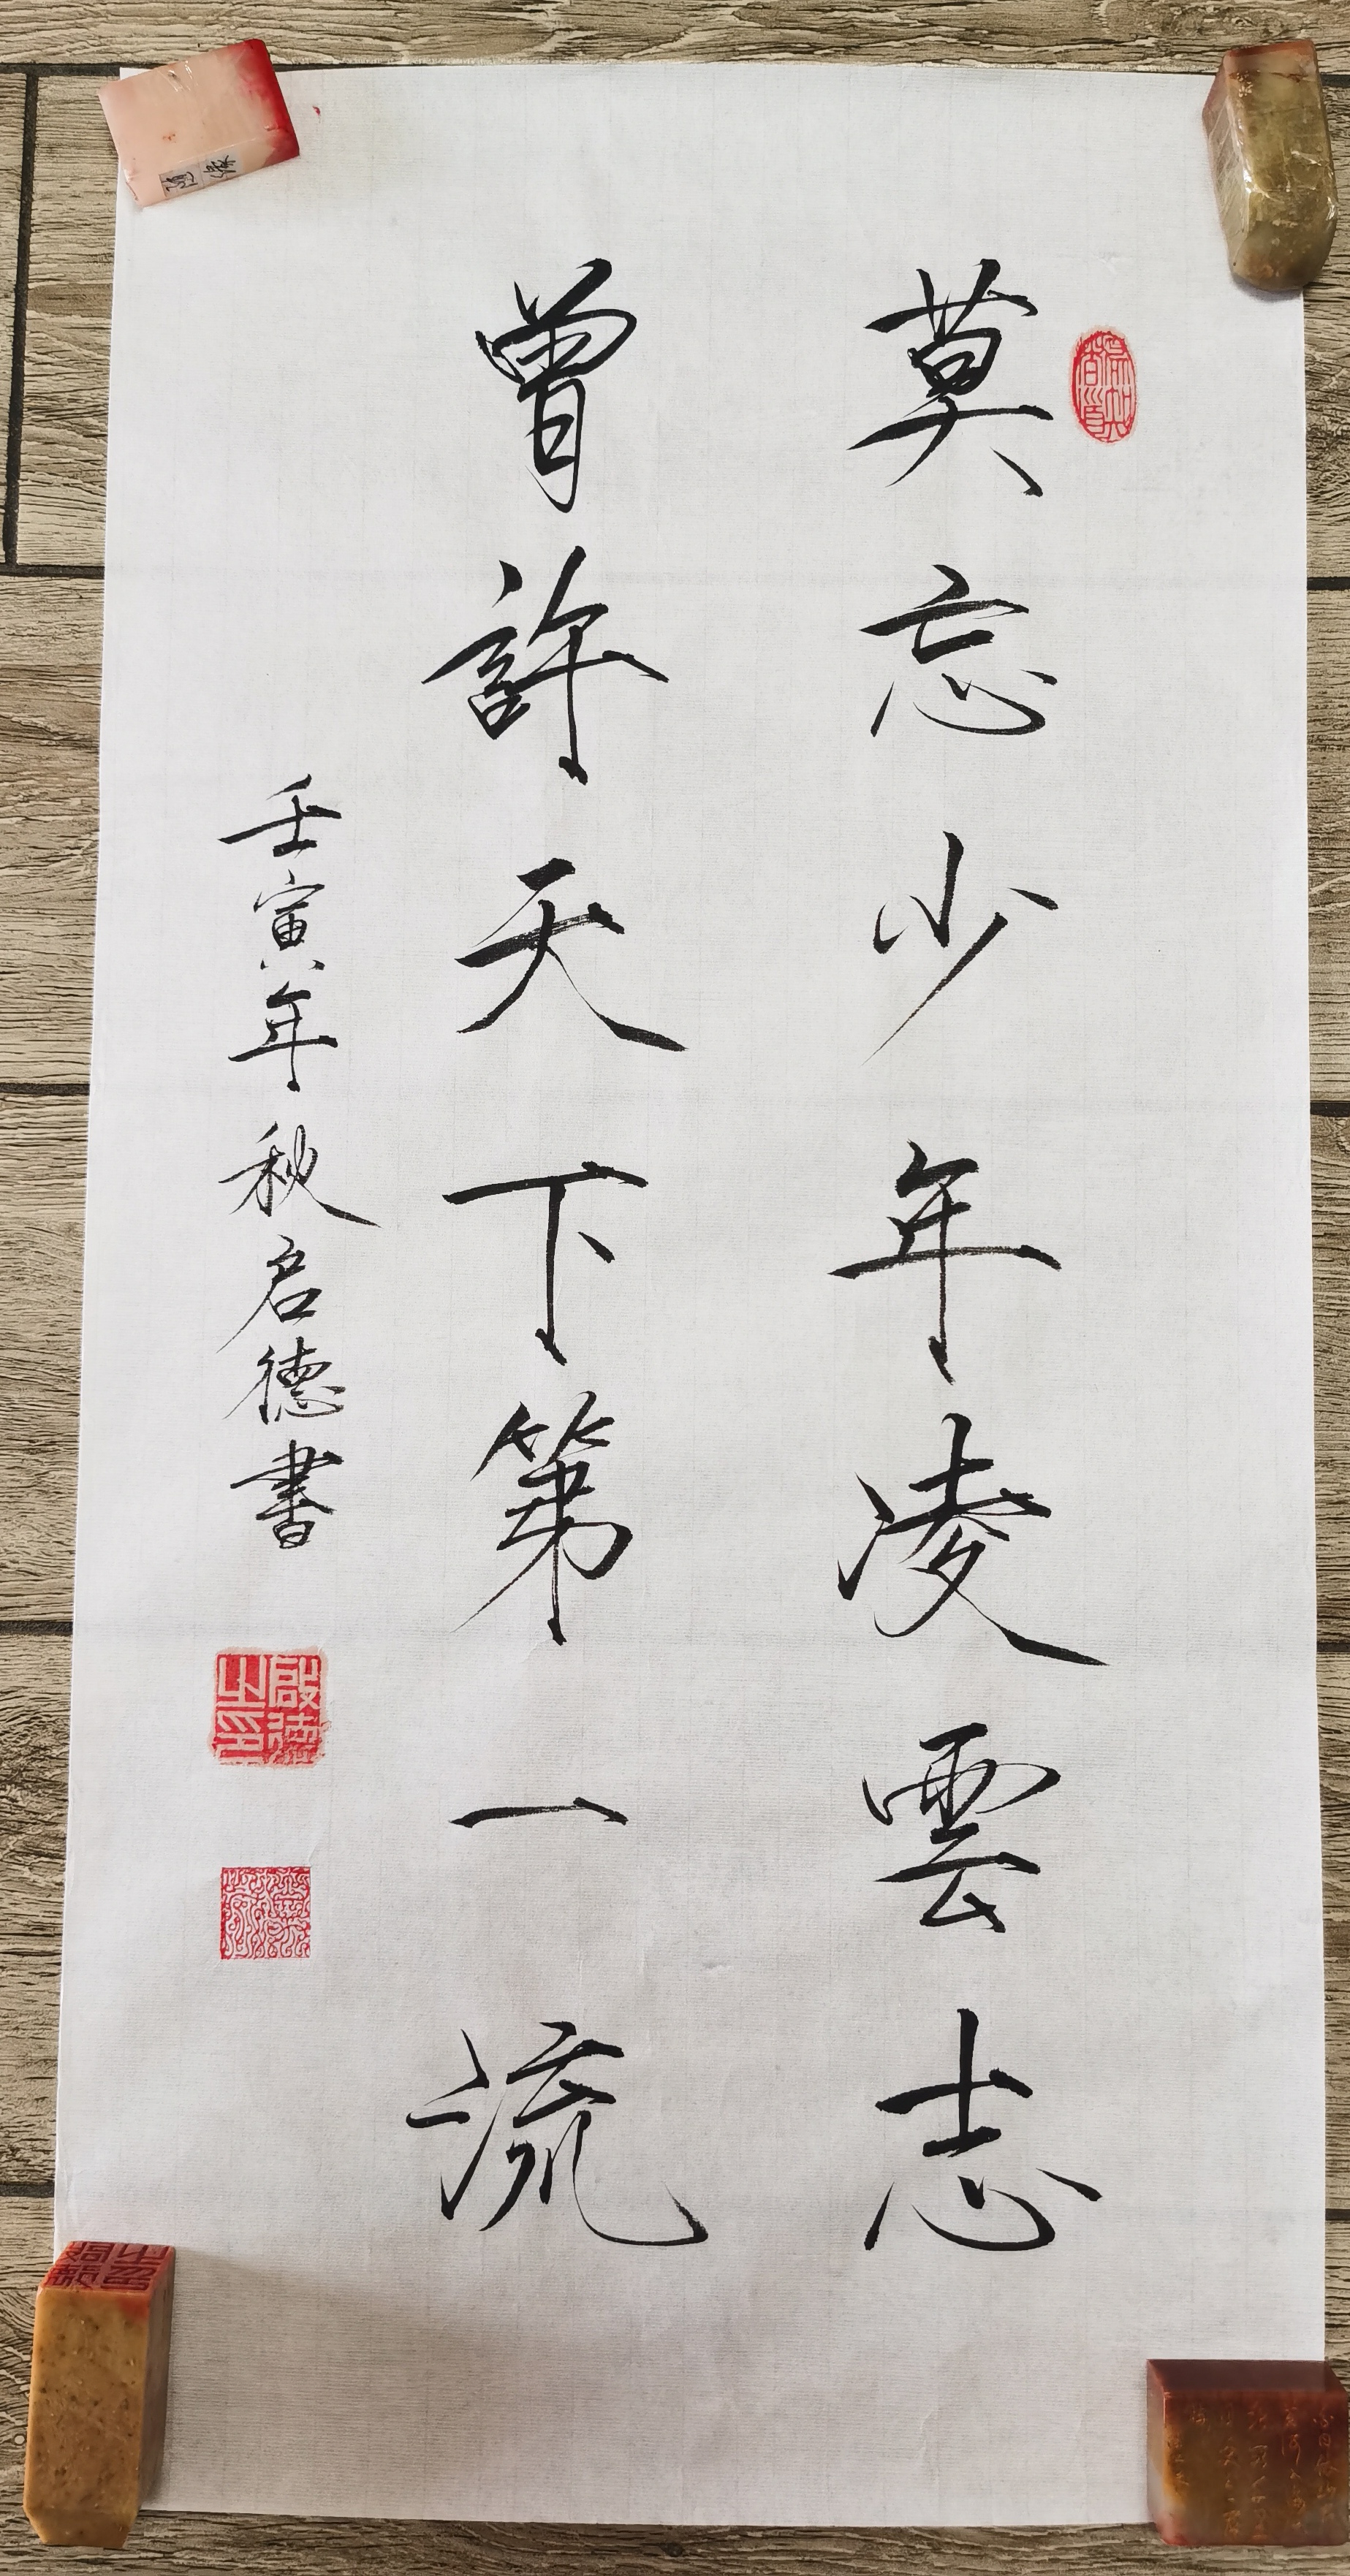 莫忘少年凌雲志
曾許天下第一流
壬寅年秋启德書
啟德之印